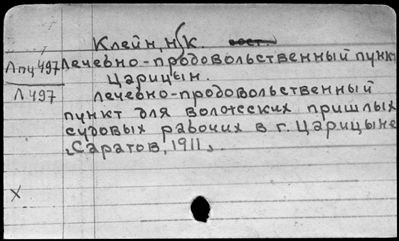 Клейн, Н.К.
Лпц 497 Лечебно-продовольственный пункт
Царицын.
Л 497 Лечебно-продовольственный
пункт для волжских пришлых
судовых рабочих в г. Царицыне
Саратов, 1911.
X